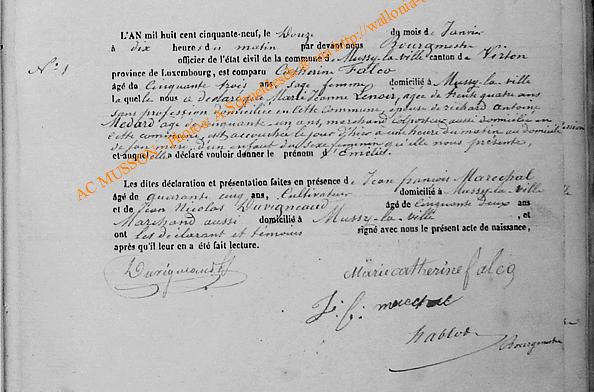 N° 1
L'AN mil huit cent cinquante-neuf, le Douze du mois de Janvier
à dix heures du matin par devant nous Bourgmestre
officier de l'état civil de la commune de Mussy-la-ville canton de Virton
province de Luxembourg, est comparu Catherine Falco
âgé de Cinquante trois ans, sage femme domicilié à Mussy-la-ville
Laquelle nous a déclaré que Marie Jeanne Lenoir, agée de trente quatre ans
sans profession domiciliée en cette Commune, épouse de richard Antoine
Médard agé de cinquante-un ans, marchand Eposteux aussi domicilié en
cette commune est accouchée le jour d'hier à une heure du matin au domicile
de son mari, d'un enfant du sexe féminin qu'elle nous présente,
et auquel elle a déclaré vouloir donner le prénom d'Emélie.
Les dites déclaration et présentation faites en présence de Jean françois Marechal
âgé de quarante cinq ans, Cultivateur domicilié à Mussy-la-ville
et de Jean Nicolas Duvigneaud âgé de Cinquante Deux ans
Marchand aussi domicilié à Mussy-la-ville, et
ont les déclarant et témoins signé avec nous le présent acte de naissance,
après qu'il leur en a été fait lecture.
Duvigneaud
Marie catherine falco
J. f. marechal
hablot
Bourgmestre
AC MUSSON, Photos: A. Schmetz
http://wallonia